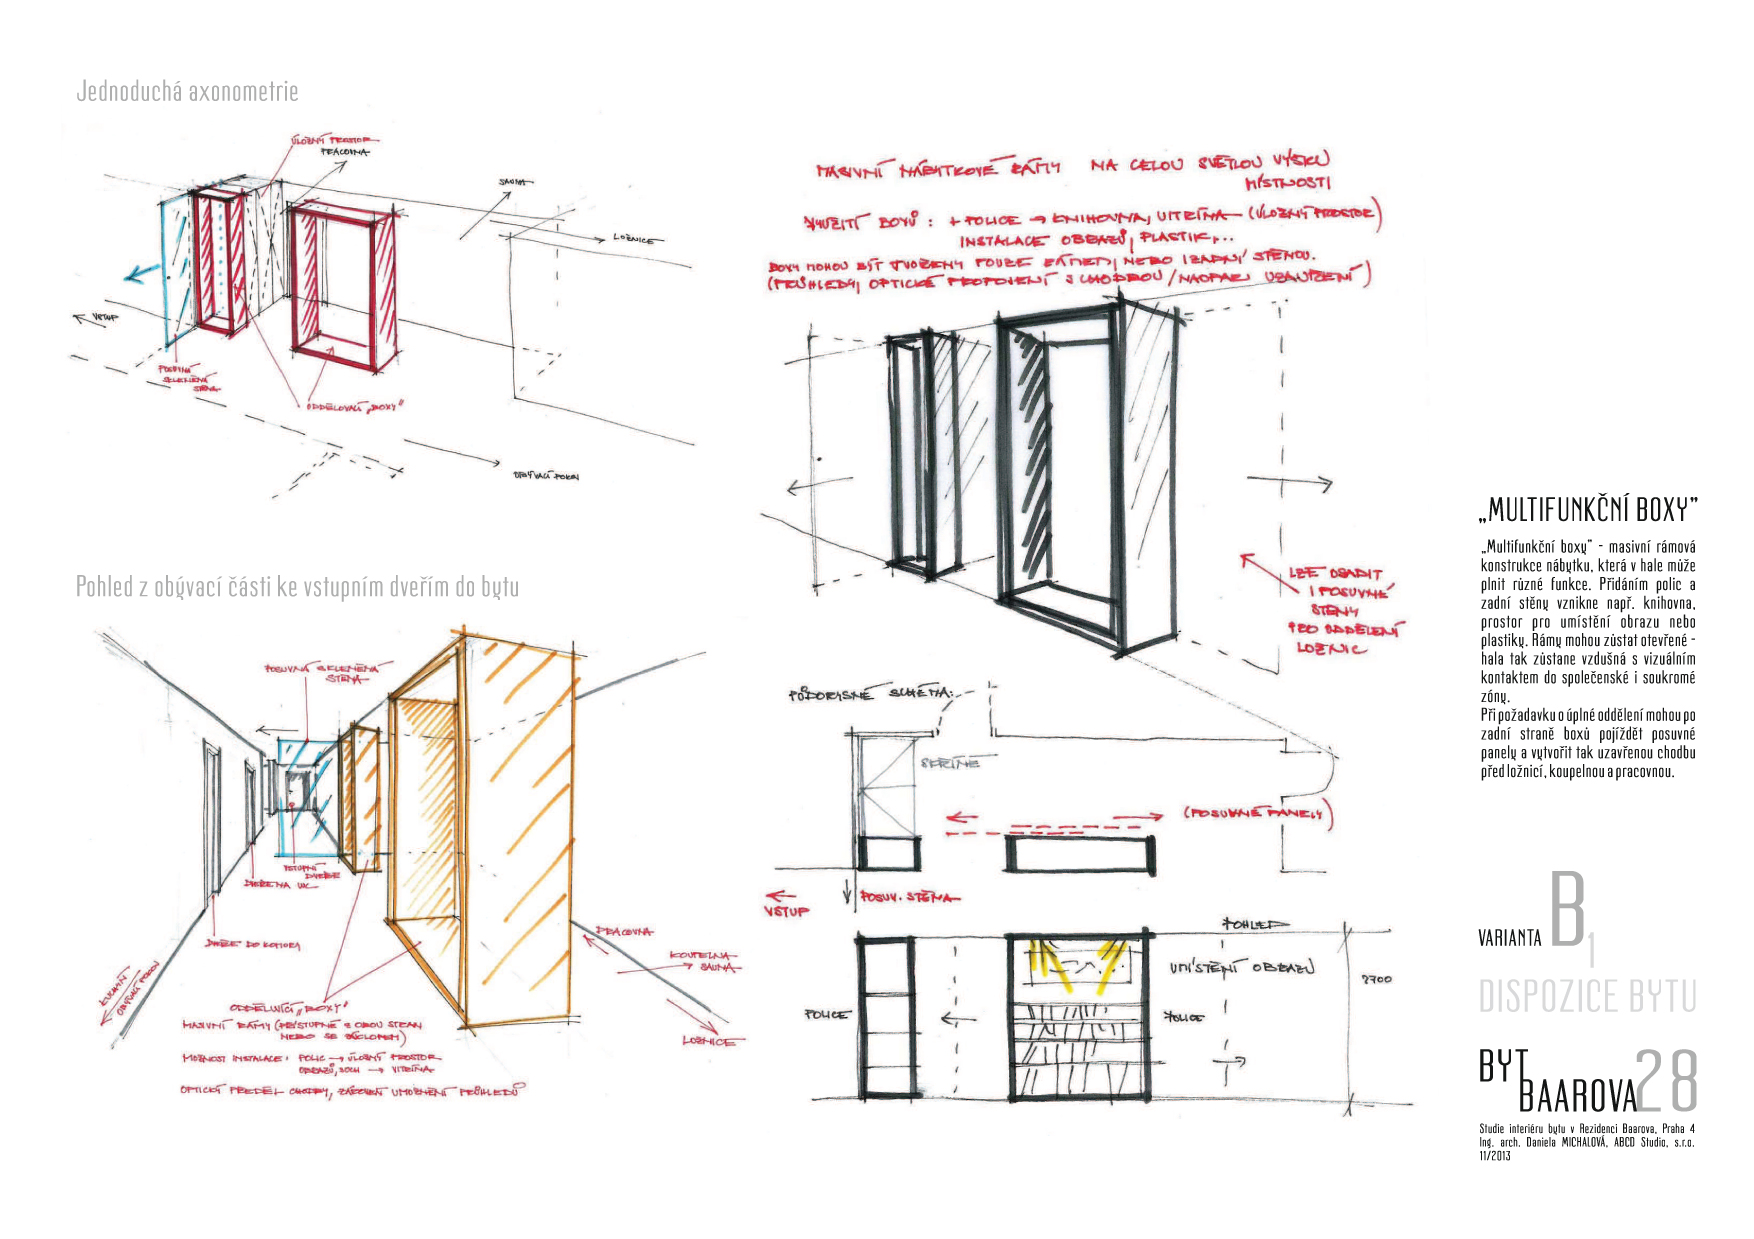 Jednoduchá axonometrie
ÚLOŽNÝ PROSTOR
PRACOVNA
SAUNA
LOŽNICE
VSTUP
POSUVNÁ
SKLENĚNÁ
STĚNA
ODDĚLOVACÍ „BOXY"
OBÝVACÍ POKOJ
MASIVNÍ NÁBYTKOVÉ RÁMY NA CELOU SVĚTLOU VÝŠKU
MÍSTNOSTI
VYUŽITÍ BOXŮ: + POLICE → KNIHOVNA, VITRÍNA (ÚLOŽNÝ PROSTOR)
INSTALACE OBRAZŮ, PLASTIK,...
BOXY MOHOU BÝT TVOŘENY POUZE RÁMEM, NEBO I ZADNÍ STĚNOU.
(PRŮHLEDY, OPTICKÉ PROPOJENÍ S CHODBOU / NAOPAK UZAVŘENÍ)
LZE OSADIT
I POSUVNÉ
STĚNY
PRO ODDĚLENÍ
LOŽNIC
Pohled z obývací části ke vstupním dveřím do bytu
POSUVNÁ SKLENĚNÁ
STĚNA
VSTUPNÍ
DVEŘE
DVEŘE NA WC
DVEŘE DO KOMORY
KUCHYŇ
OBÝVACÍ POKOJ
PRACOVNA
KOUPELNA
SAUNA
LOŽNICE
ODDĚLUJÍCÍ „BOXY"
MASIVNÍ RÁMY (PŘÍSTUPNÉ Z OBOU STRAN
NEBO SE ZÁKLOPEM)
MOŽNOST INSTALACE: POLIC → ÚLOŽNÝ PROSTOR
OBRAZŮ, SOCH → VITRÍNA
OPTICKÝ PŘEDĚL CHODBY, ZÁROVEŇ UMOŽNĚNÍ PRŮHLEDŮ
PŮDORYSNÉ SCHÉMA:
SKŘÍNĚ
(POSUVNÉ PANELY)
VSTUP
POSUV. STĚNA
POHLED
UMÍSTĚNÍ OBRAZU
2700
POLICE
POLICE
„MULTIFUNKČNÍ BOXY"
„Multifunkční boxy" - masivní rámová
konstrukce nábytku, která v hale může
plnit různé funkce. Přidáním polic a
zadní stěny vznikne např. knihovna,
prostor pro umístění obrazu nebo
plastiky. Rámy mohou zůstat otevřené -
hala tak zůstane vzdušná s vizuálním
kontaktem do společenské i soukromé
zóny.
Při požadavku o úplné oddělení mohou po
zadní straně boxů pojíždět posuvné
panely a vytvořit tak uzavřenou chodbu
před ložnicí, koupelnou a pracovnou.
VARIANTA B1
DISPOZICE BYTU
BYT
BAAROVA 28
Studie interiéru bytu v Rezidenci Baarova, Praha 4
Ing. arch. Daniela MICHALOVÁ, ABCD Studio, s.r.o.
11/2013